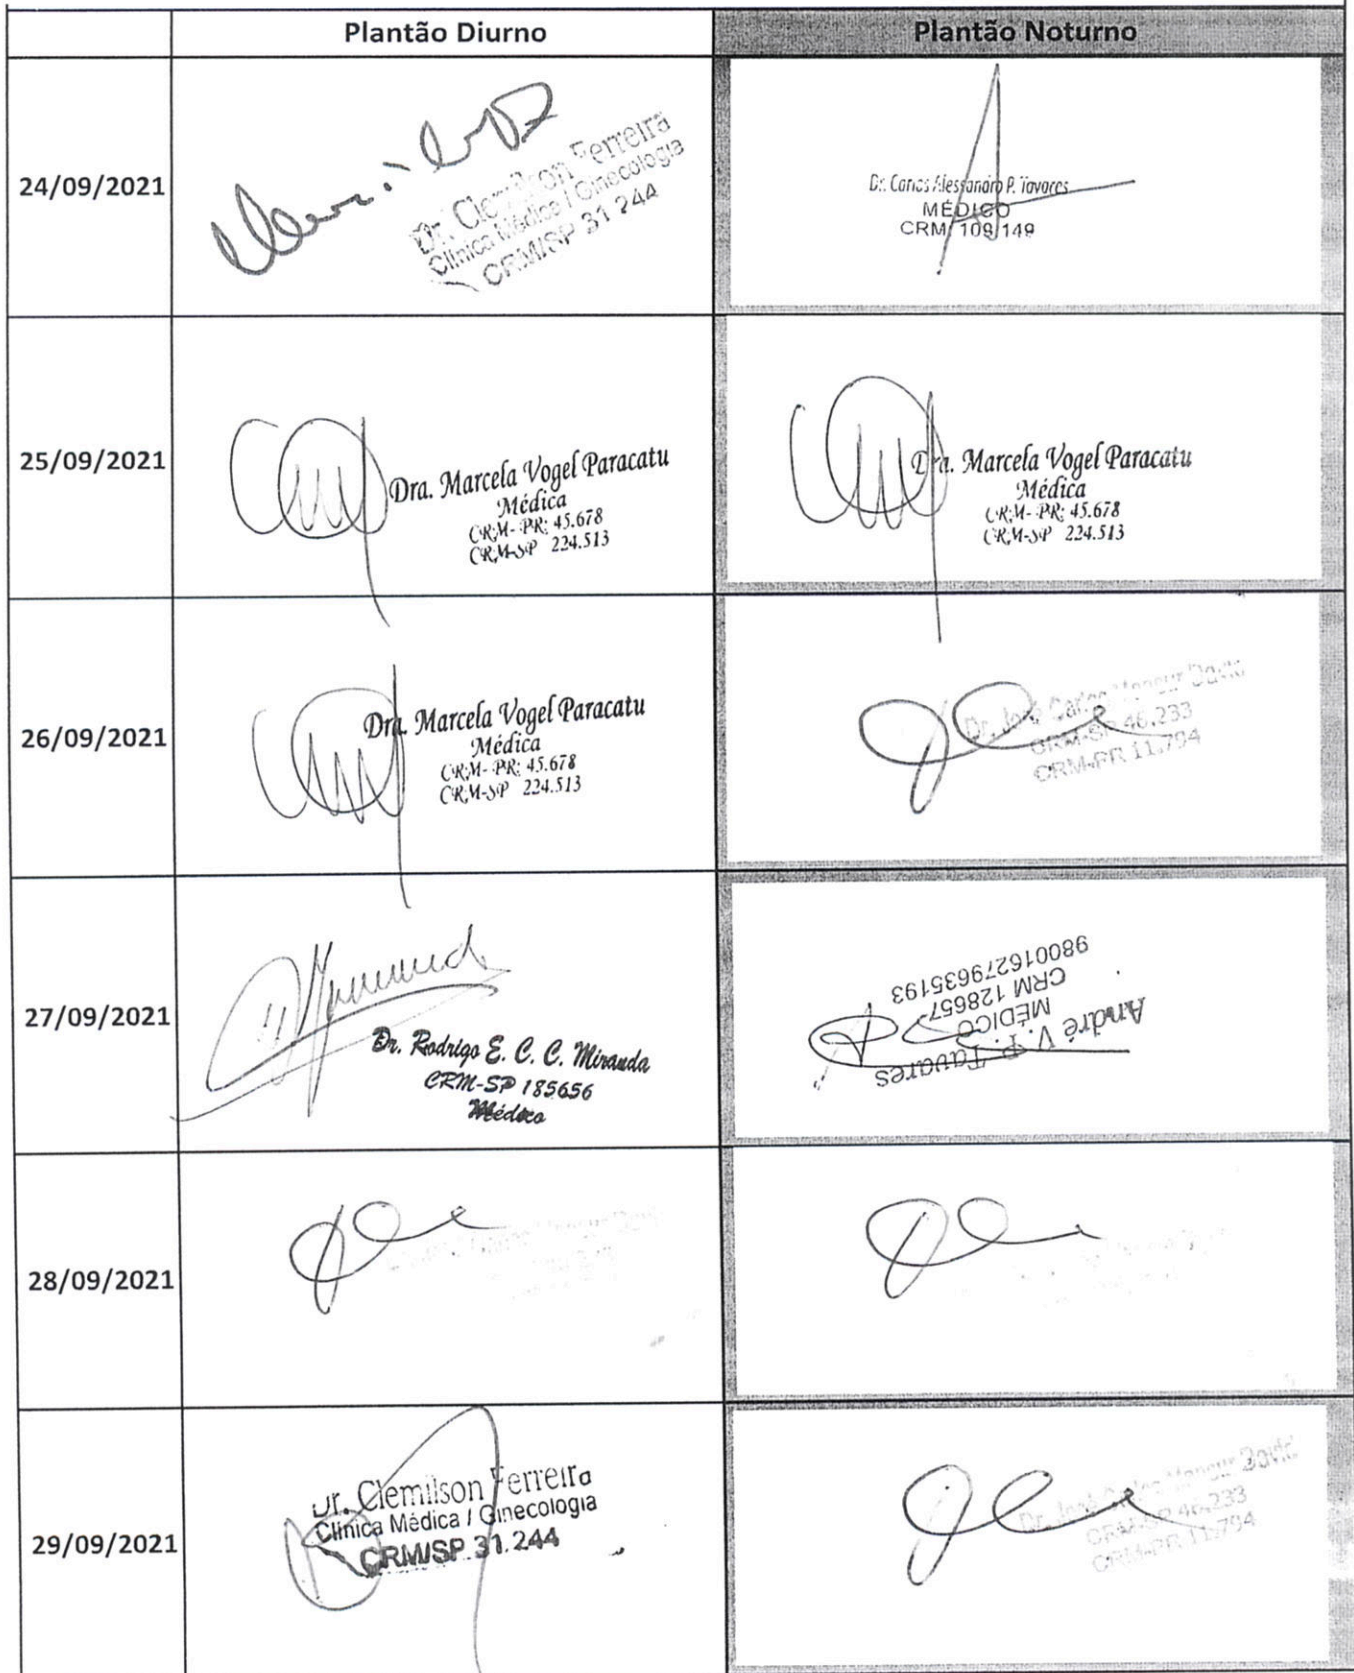 Plantão Diurno
Plantão Noturno
24/09/2021
Dr. Clemilson Ferreira
Clínica Médica / Ginecologia
CRM/SP 31 244
Dr. Carlos Alessandro P. Tavares
MÉDICO
CRM 109 149
25/09/2021
Dra. Marcela Vogel Paracatu
Médica
CRM- PR: 45.678
CRM-SP 224.513
Dra. Marcela Vogel Paracatu
Médica
CRM- PR: 45.678
CRM-SP 224.513
26/09/2021
Dra. Marcela Vogel Paracatu
Médica
CRM- PR: 45.678
CRM-SP 224.513
Dr. José Carlos Mansur David
CRM-SP 46.233
CRM-PR 11.794
27/09/2021
Dr. Rodrigo E. C. C. Miranda
CRM-SP 185656
Médico
André V. P. Tavares
MÉDICO
CRM 128657
980016279635193
28/09/2021
29/09/2021
Dr. Clemilson Ferreira
Clínica Médica / Ginecologia
CRM/SP 31.244
Dr. José Carlos Mansur David
CRM-SP 46.233
CRM-PR 11.794